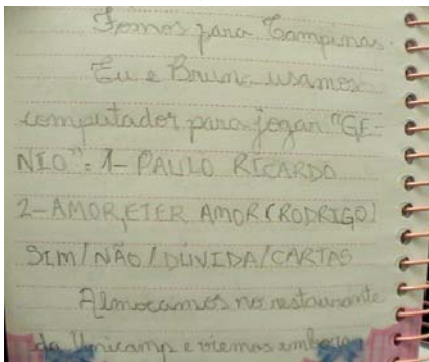 Fomos para Campinas.
Eu e Bruna usamos
computador para jogar "GÊ-
NIO": 1- PAULO RICARDO
2- AMOR, ETER AMOR (RODRIGO)
SIM/NÃO/DÚVIDA/CARTAS
Almoçamos no restaurante
da Unicamp e viemos embora